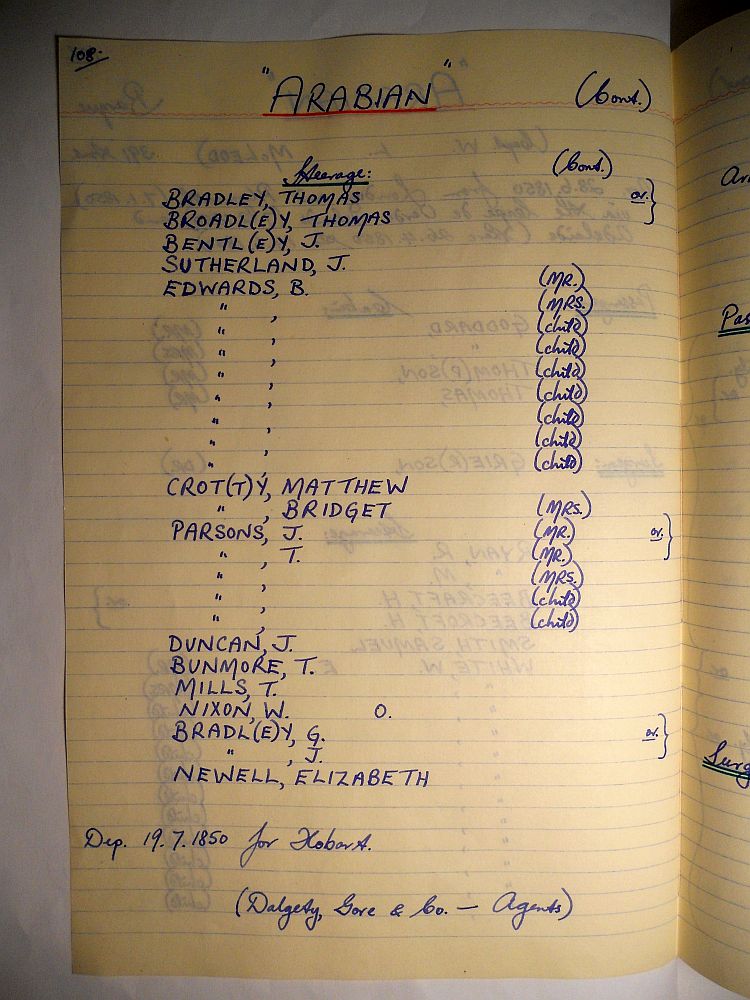 108.
"ARABIAN" (Cont.)
Steerage: (Cont.)
BRADLEY, THOMAS or. }
BROADL(E)Y, THOMAS
BENTL(E)Y, J.
SUTHERLAND, J.
EDWARDS, B. (MR.)
" , (MRS.)
" , (child)
" , (child)
" , (child)
" , (child)
" , (child)
" , (child)
" , (child)
CROT(T)Y, MATTHEW
" , BRIDGET (MRS.)
PARSONS, J. (MR.) or. }
" , T. (MR.)
" , (MRS.)
" , (child)
" , (child)
DUNCAN, J.
BUNMORE, T.
MILLS, T.
NIXON, W. O.
BRADL(E)Y, G. or. }
" , J.
NEWELL, ELIZABETH
Dep. 19.7.1850 for Hobart.
(Dalgety, Gore & Co. — Agents)